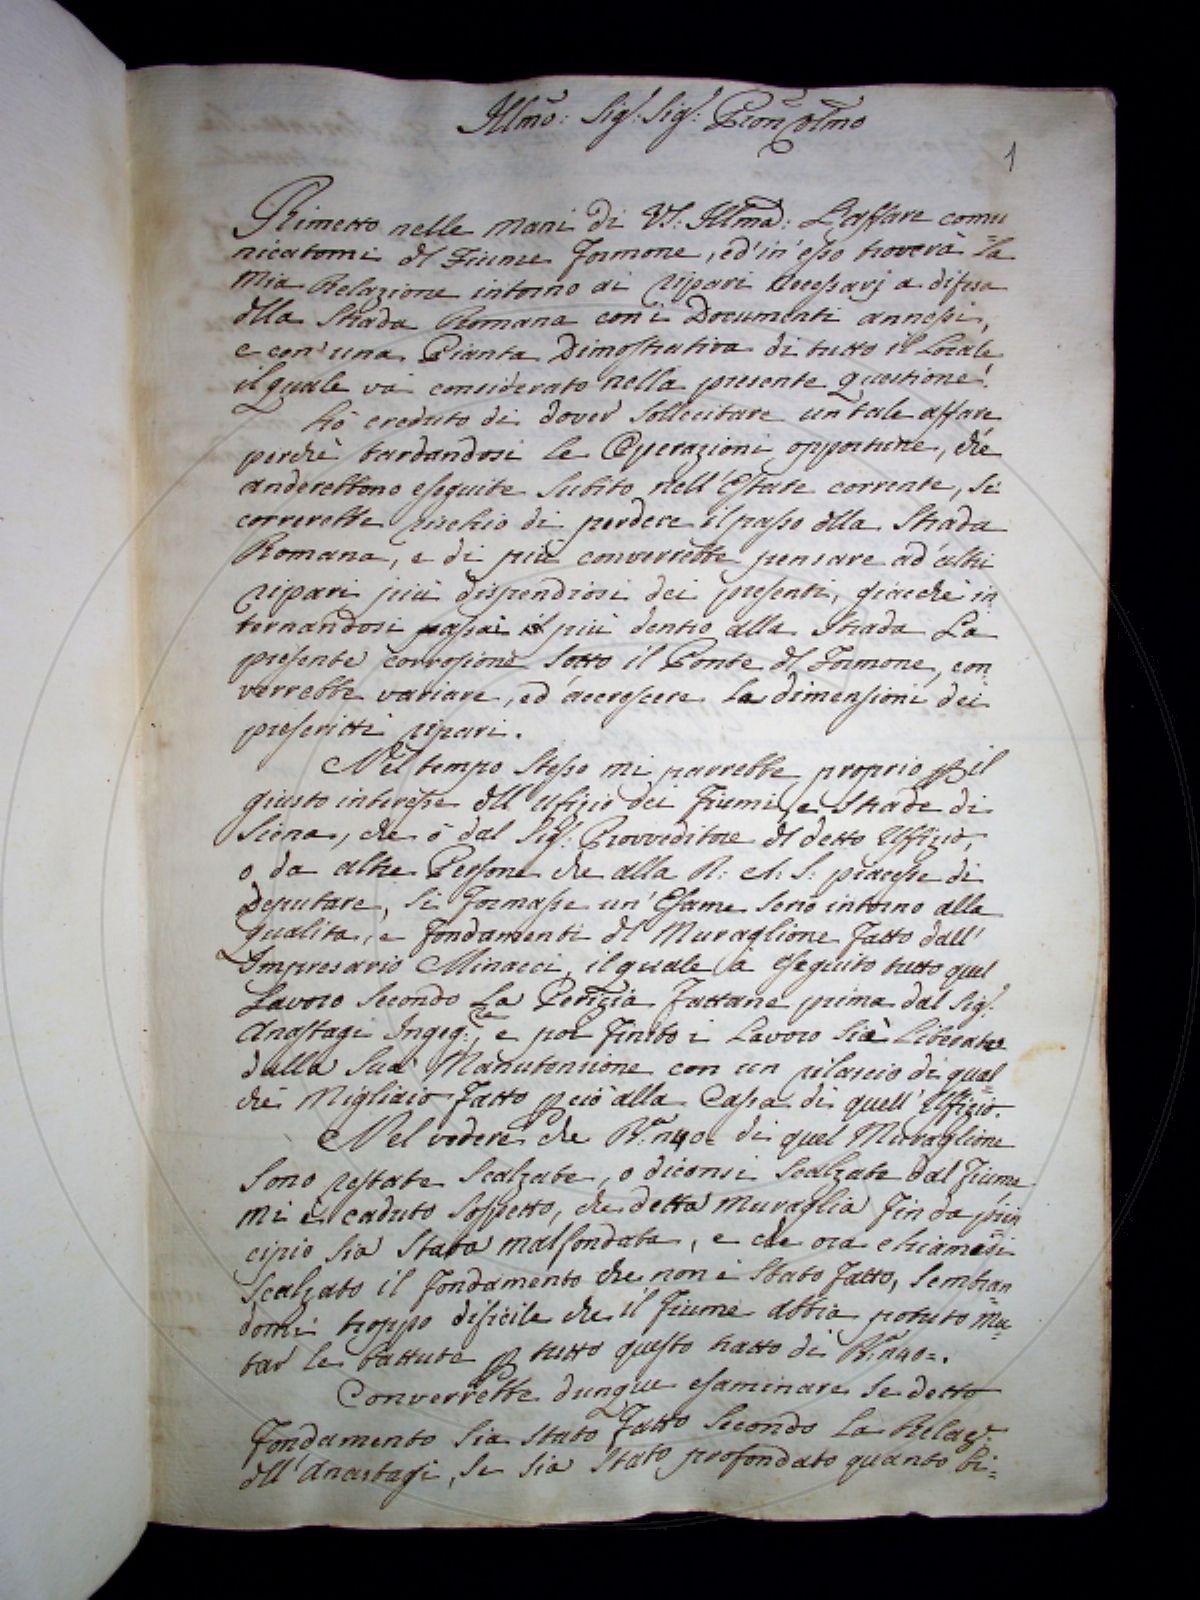 Illmo: Sig.r Sig.r Pron Colmo
1
Rimetto nelle mani di VS: Illma: L'affare comu
nicatomi dl Fiume Formone, ed'in'esso troverà La
Mia Relazione intorno ai ripari necessarj a difesa
dlla Strada Romana con i Documenti annessi,
e con'una Pianta Dimostrativa di tutto il Locale
il quale và considerato nella presente questione.
hò creduto di dover sollecitare un tale affare
perchè tardandosi le Operazioni opportune, che
anderebbono eseguite subito nell'Estate corrente, si
correrebbe rischio di perdere il passo dlla Strada
Romana, e di più converrebbe pensare ad'altri
ripari più dispendiosi dei presenti, giacchè in
ternandosi più dentro alla Strada La
presente corrosione sotto il Ponte dl Formone, con
verrebbe variare, ed'accrescere le dimensioni dei
prescritti ripari.
Nel tempo stesso mi parrebbe proprio p il
giusto interesse dll'Ufizio dei Fiumi, e Strade di
Siena, che ò dal Sig.r Provveditore dl detto Uffizio,
o da altre Persone che alla R: A: S: piacesse di
Deputare, si formasse un'Esame serio intorno alla
qualita, e fondamenti dl Muraglione fatto dall'
Impresario Minacci, il quale à eseguito tutto quel
Lavoro secondo La Perizia fattane prima dal Sig.r
Anastagi Ingeg.re, e poi finito i Lavoro sia Liberato
dalla sua Manutensione con un rilascio di qual=
che Migliaio fatto p ciò alla Cassa di quell'Uffizio.
Nel vedere che B.a n 40= di quel Muraglione
sono restate scalzate, o diconsi scalzate dal Fiume
mi è caduto sospetto, che detta muraglia fin da prin=
cipio sia stata malfondata, e che ora chiamasi
scalzato il fondamento che non è stato fatto, sembran=
domi troppo dificile che il fiume abbia potuto mu=
tar le battute p tutto questo tratto di B.a n 40=.
Converrebbe dunque esaminare se detto
fondamento sia stato fatto secondo La Relaz.e
dll'Anastagi, se sia stato profondato quanto bi=